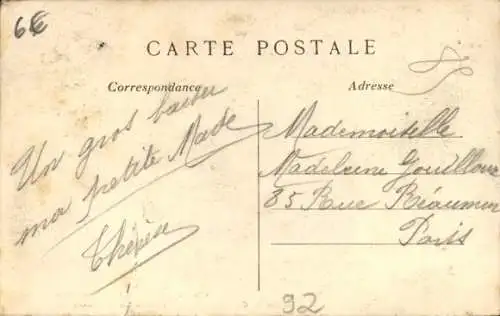 6€
CARTE POSTALE
Correspondance
Adresse
Un gros baiser
ma petite Made
Thérèse
Mademoiselle
Madeleine Gouilloux
85 Rue Réaumur
Paris
92